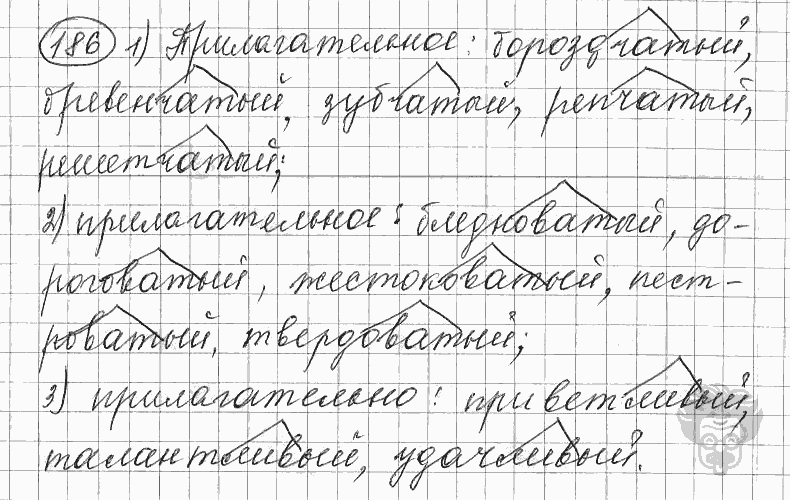 186 1) Прилагательное: бороздчатый,
бревенчатый, зубчатый, репчатый,
решетчатый;
2) прилагательное: бледноватый, до-
роговатый, жестоковатый, пест-
роватый, твердоватый;
3) прилагательно: приветливый,
талантливый, удачливый.